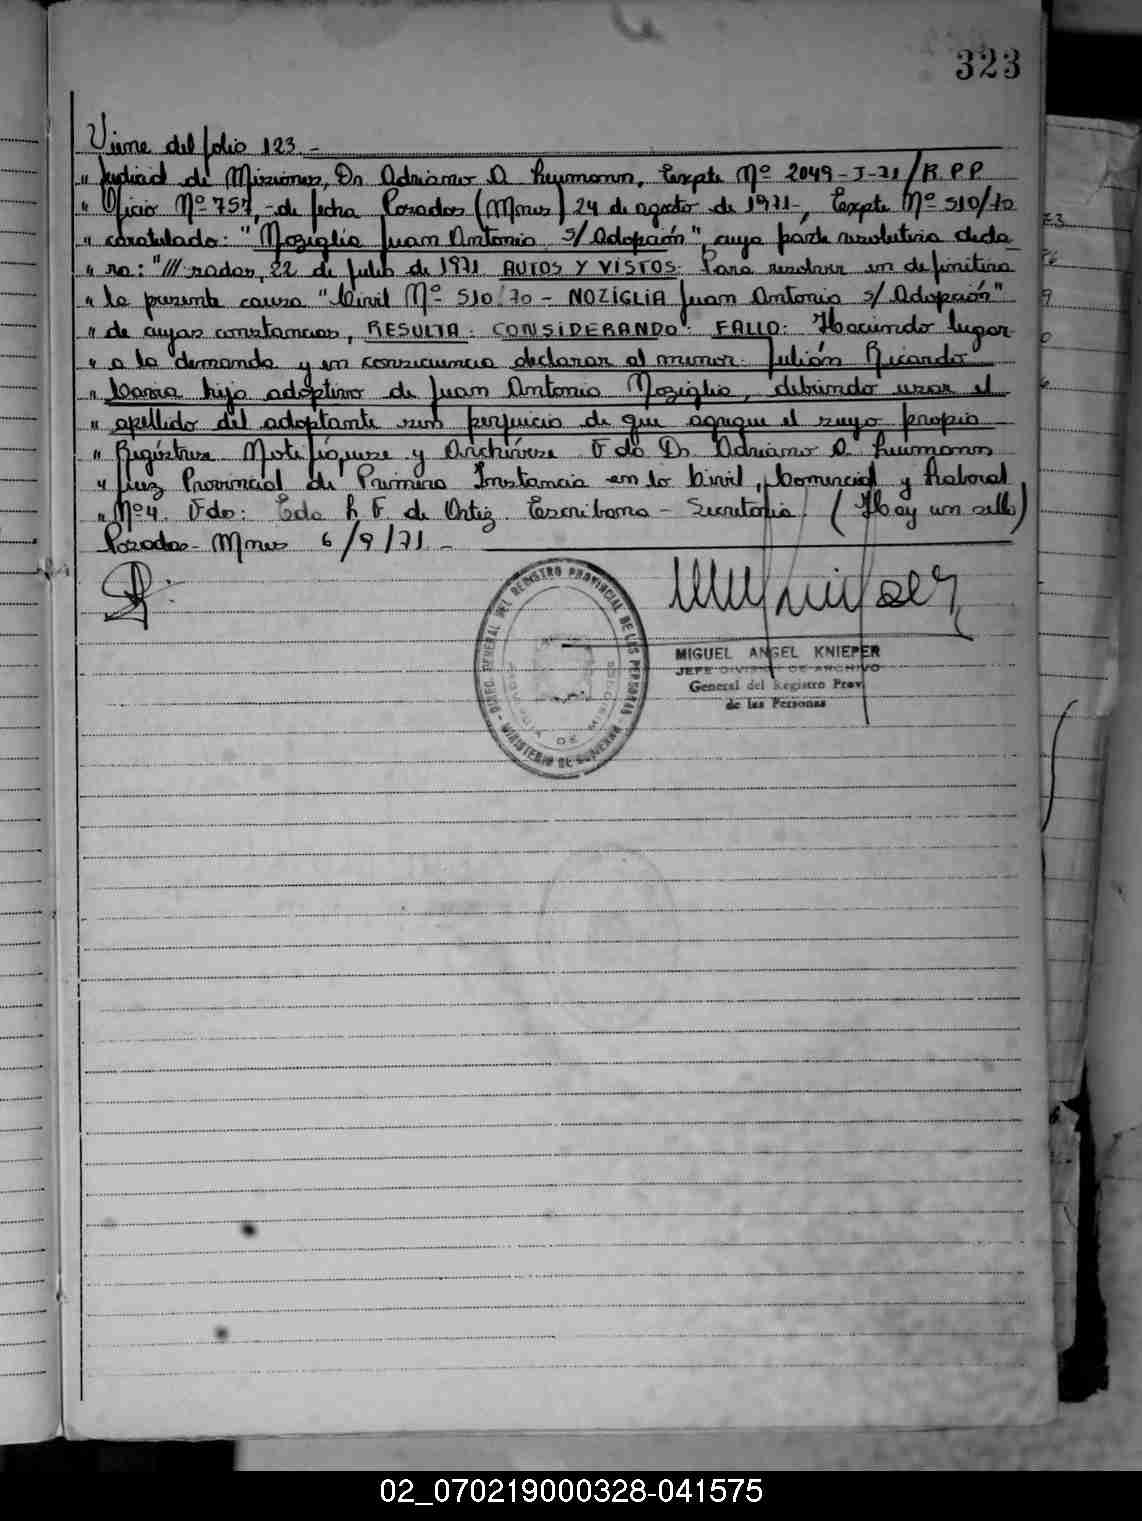 323
Viene del folio 123.-
" Judicial de Misiones, Dr Adriano A. Neumann, Expte Nº 2049-J-71/R.P.P
" Oficio Nº 757,- de fecha Posadas (Mnes) 24 de agosto de 1971-, Expte Nº 510/70
" caratulado: "Noziglia Juan Antonio s/ Adopción", cuya parte resolutiva decla
" ra: "/// sadas, 22 de julio de 1971 AUTOS Y VISTOS: Para resolver en definitiva
" la presente causa "Civil Nº 510/70 - NOZIGLIA Juan Antonio s/ Adopción"
" de cuyas constancias, RESULTA: CONSIDERANDO: FALLO: Haciendo lugar
" a la demanda y en consecuencia declarar al menor: Julián Ricardo
" hijo adoptivo de Juan Antonio Noziglia, debiendo usar el
" apellido del adoptante sin perjuicio de que agregue el suyo propio
" Regístrese Notifíquese y Archívese Fdo Dr Adriano A. Neumann
" Juez Provincial de Primera Instancia en lo Civil, Comercial y Laboral
" Nº 4. Fdo: Eda L F. de Ortiz Escribana - Secretaria. (Hay un sello)
Posadas - Mnes 6/9/71 -
DIREC. GENERAL DEL REGISTRO PROVINCIAL DE LAS PERSONAS - MINISTERIO DE GOBIERNO -
MIGUEL ANGEL KNIEPER
JEFE DIVISION DE ARCHIVO
General del Registro Prov.
de las Personas
02_070219000328-041575